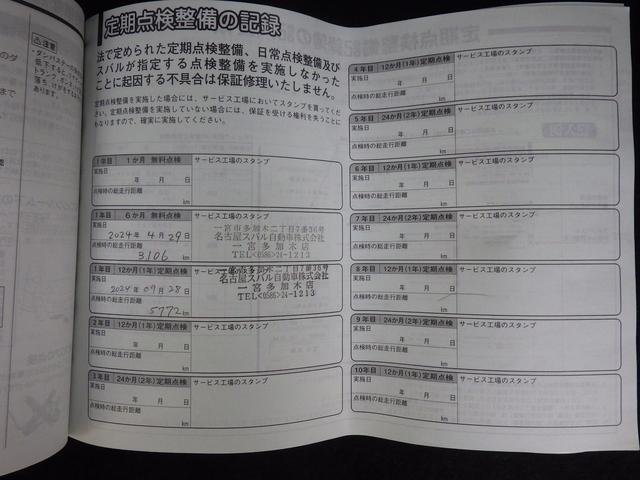 ⚠注意
定期点検整備の記録
法で定められた定期点検整備、日常点検整備及び
スバルが指定する点検整備を実施しなかった
ことに起因する不具合は保証修理いたしません。
定期点検整備を実施した場合には、サービス工場においてスタンプを貰ってくだ
さい。定期点検整備を実施していない場合には、保証を受ける権利を失うことに
もなりますので、確実に実施してください。
1年目 1か月 無料点検 サービス工場のスタンプ
実施日
年 月 日
点検時の総走行距離
km
1年目 6か月 無料点検 サービス工場のスタンプ
実施日
2024年 4月 29日
点検時の総走行距離
3,106 km
一宮市多加木二丁目7番36号
名古屋スバル自動車株式会社
一宮多加木店
TEL<0586>24-1213
1年目 12か月(1年)定期点検 サービス工場のスタンプ
実施日
2024年 07月 28日
点検時の総走行距離
5772 km
一宮市多加木二丁目7番36号
名古屋スバル自動車株式会社
一宮多加木店
TEL<0586>24-1213
2年目 12か月(1年)定期点検 サービス工場のスタンプ
実施日
年 月 日
点検時の総走行距離
km
3年目 24か月(2年)定期点検 サービス工場のスタンプ
実施日
年 月 日
点検時の総走行距離
km
4年目 12か月(1年)定期点検 サービス工場のスタンプ
実施日
年 月 日
点検時の総走行距離
km
5年目 24か月(2年)定期点検 サービス工場のスタンプ
実施日
年 月 日
点検時の総走行距離
km
6年目 12か月(1年)定期点検 サービス工場のスタンプ
実施日
年 月 日
点検時の総走行距離
km
7年目 24か月(2年)定期点検 サービス工場のスタンプ
実施日
年 月 日
点検時の総走行距離
km
8年目 12か月(1年)定期点検 サービス工場のスタンプ
実施日
年 月 日
点検時の総走行距離
km
9年目 24か月(2年)定期点検 サービス工場のスタンプ
実施日
年 月 日
点検時の総走行距離
km
10年目 12か月(1年)定期点検 サービス工場のスタンプ
実施日
年 月 日
点検時の総走行距離
km